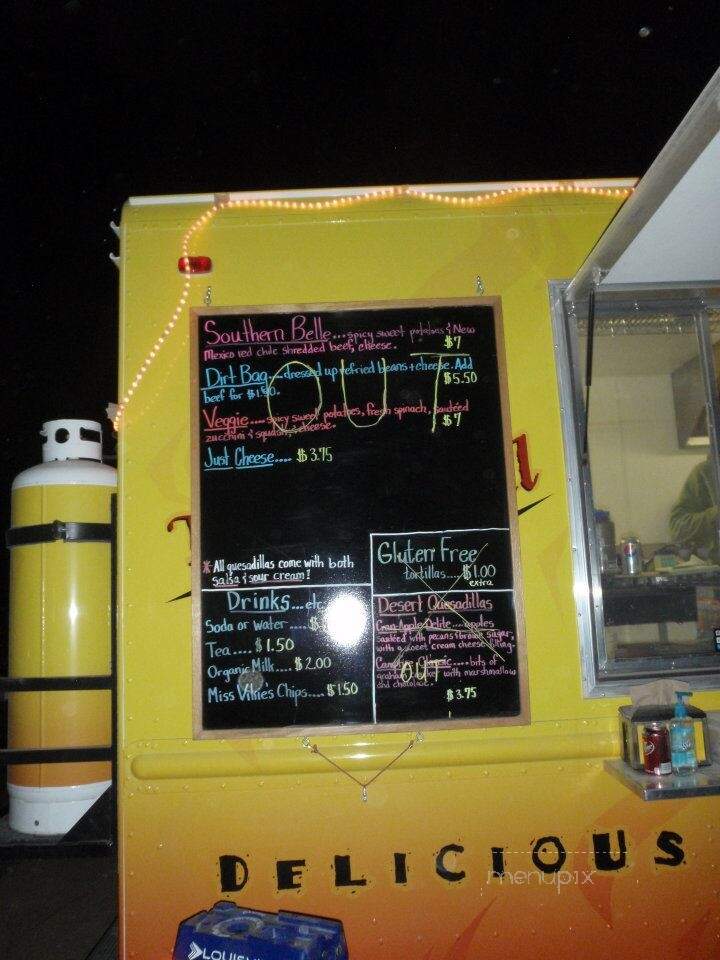 Southern Belle...spicy sweet potatoes & New
Mexico red chile shredded beef, cheese. $7
Dirt Bag....dressed up refried beans + cheese. Add
beef for $1.50. $5.50
OUT
Veggie.....spicy sweet potatoes, fresh spinach, sautéed
zucchini & squash, cheese. $7
Just Cheese.... $3.75
* All quesadillas come with both
salsa & sour cream!
Gluten Free
tortillas.... $1.00
extra
Drinks...etc.
Soda or water.... $
Tea.... $1.50
Organic Milk.... $2.00
Miss Vikie's Chips.... $1.50
Desert Quesadillas
Cran-Apple Delite....apples
sautéed with pecans & brown sugar,
with a sweet cream cheese filling.
Classic....bits of
with marshmallow
and chocolate.
OUT
$3.75
DELICIOUS
menupix